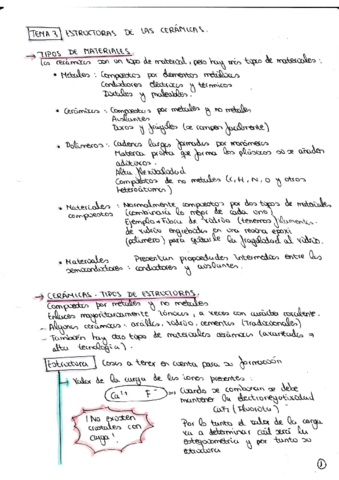 TEMA 3 ESTRUCTURAS DE LAS CERÁMICAS.
→ TIPOS DE MATERIALES
Las cerámicas son un tipo de material, pero hay más tipos de materiales:
* Metales: Compuestos por elementos metálicos
Conductores eléctricos y térmicos
Dúctiles y maleables.
* Cerámicas: Compuestas por metales y no metales
Aislantes
Duros y frágiles (se rompen fácilmente)
* Polímeros: Cadenas largas formadas por monómeros
Materia prima que forma los plásticos si se añaden
aditivos.
Alta flexibilidad
Compuestos de no metales (C, H, N, O y otros
Heteroátomos)
* Materiales compuestos: Normalmente compuestos por dos tipos de materiales
(combinaría lo mejor de cada uno)
Ejemplo: Fibra de Vidrio (tenemos filamentos
de vidrio embebidos en una resina epoxi
(polímero) para quitarle la fragilidad al vidrio.
* Materiales semiconductores: Presentan propiedades intermedias entre los
conductores y aislantes.
→ CERÁMICAS. TIPOS DE ESTRUCTURAS.
Compuestas por metales y no metales
Enlaces mayoritariamente iónicos, a veces con carácter covalente.
- Algunas cerámicas: arcillas, vidrio, cementos (Tradicionales)
- También hay otro tipo de materiales cerámicos (avanzados =
alta tecnología).
Estructura Cosas a tener en cuenta para su formación
→ Valor de la carga de los iones presentes.
Ca²⁺ F⁻ Cuando se combinan se debe
mantener la electroneutralidad
CaF₂ (Fluorita)
¡No existen
cristales con
carga!
Por lo tanto el valor de la carga
va a determinar cuál será la
estequiometría y por tanto su
estructura
1